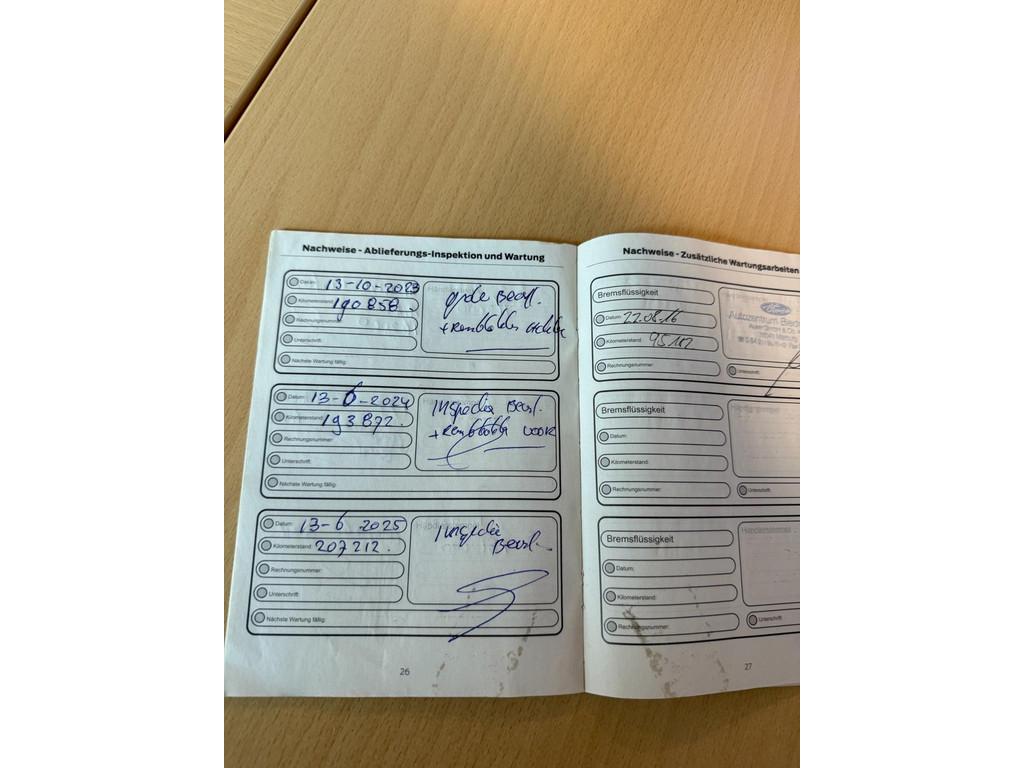 Nachweise - Ablieferungs-Inspektion und Wartung
Datum: 13-10-2023
Kilometerstand: 190858.
Rechnungsnummer:
Unterschrift:
Nächste Wartung fällig:
grote Beurt.
+ Remblokken
Datum: 13-6-2024
Kilometerstand: 193872.
Rechnungsnummer:
Unterschrift:
Nächste Wartung fällig:
Inspectie Beurt.
+ Remblokken voor
Datum: 13-6 2025
Kilometerstand: 207212.
Rechnungsnummer:
Unterschrift:
Nächste Wartung fällig:
Inspectie
Beurt.
26
Nachweise - Zusätzliche Wartungsarbeiten
Bremsflüssigkeit
Datum: 22.08.16
Kilometerstand:
Rechnungsnummer:
Ford
Autozentrum
Unterschrift:
Bremsflüssigkeit
Datum:
Kilometerstand:
Rechnungsnummer:
Händlerstempel
Unterschrift:
Bremsflüssigkeit
Datum:
Kilometerstand:
Rechnungsnummer:
Händlerstempel
Unterschrift:
27